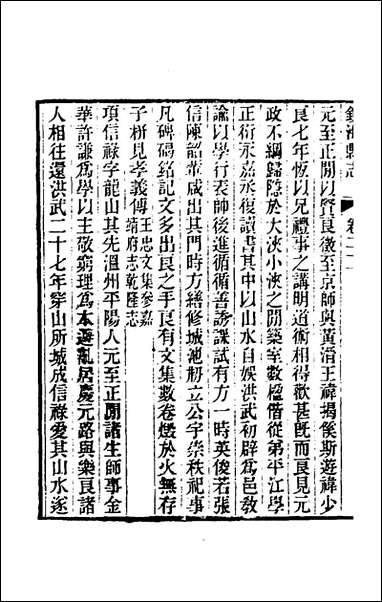 鎮海縣志 卷二十
元至正閒以賢良徵至京師與黃溍王禕揭傒斯遊禕少
良七年恆以兄禮事之講明道術相得歡甚旣而良見元
政不綱歸隱於大浹小浹之閒築室數楹偕從弟平江學
正衍永嘉丞復讀書其中以山水自娛洪武初辟爲邑敎
諭以學行表師後進循循善誘課試有方一時英俊若張
信陳韶輩咸出其門時方繕修城池刱立公宇崇秩祀事
凡碑碣銘記文多出良之手良有文集數卷燬於火無存
子栟見孝義傳 王忠文集參嘉靖府志乾隆志
項信祿字龍山其先溫州平陽人元至正閒諸生師事金
華許謙爲學以主敬窮理爲本避亂居慶元路與樂良諸
人相往還洪武二十七年穿山所城成信祿愛其山水遂